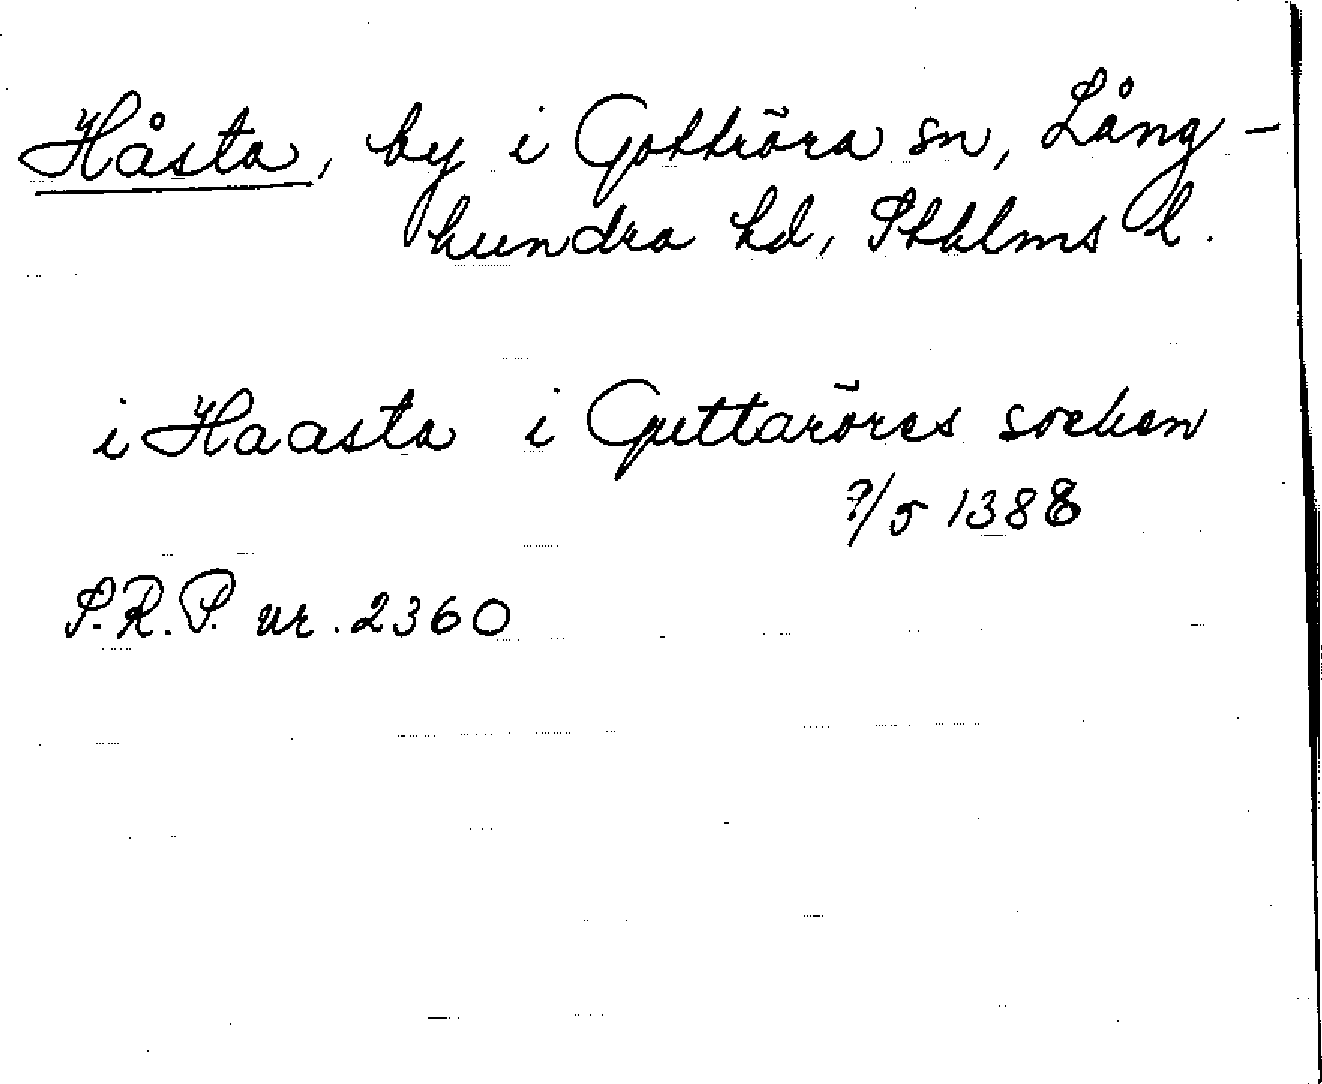 Håsta, by i Gottröra sn, Lång-
hundra hd, Sthlms l.
i Haasta i Guttarörös socken
?/5 1388
S.R.P. nr. 2360